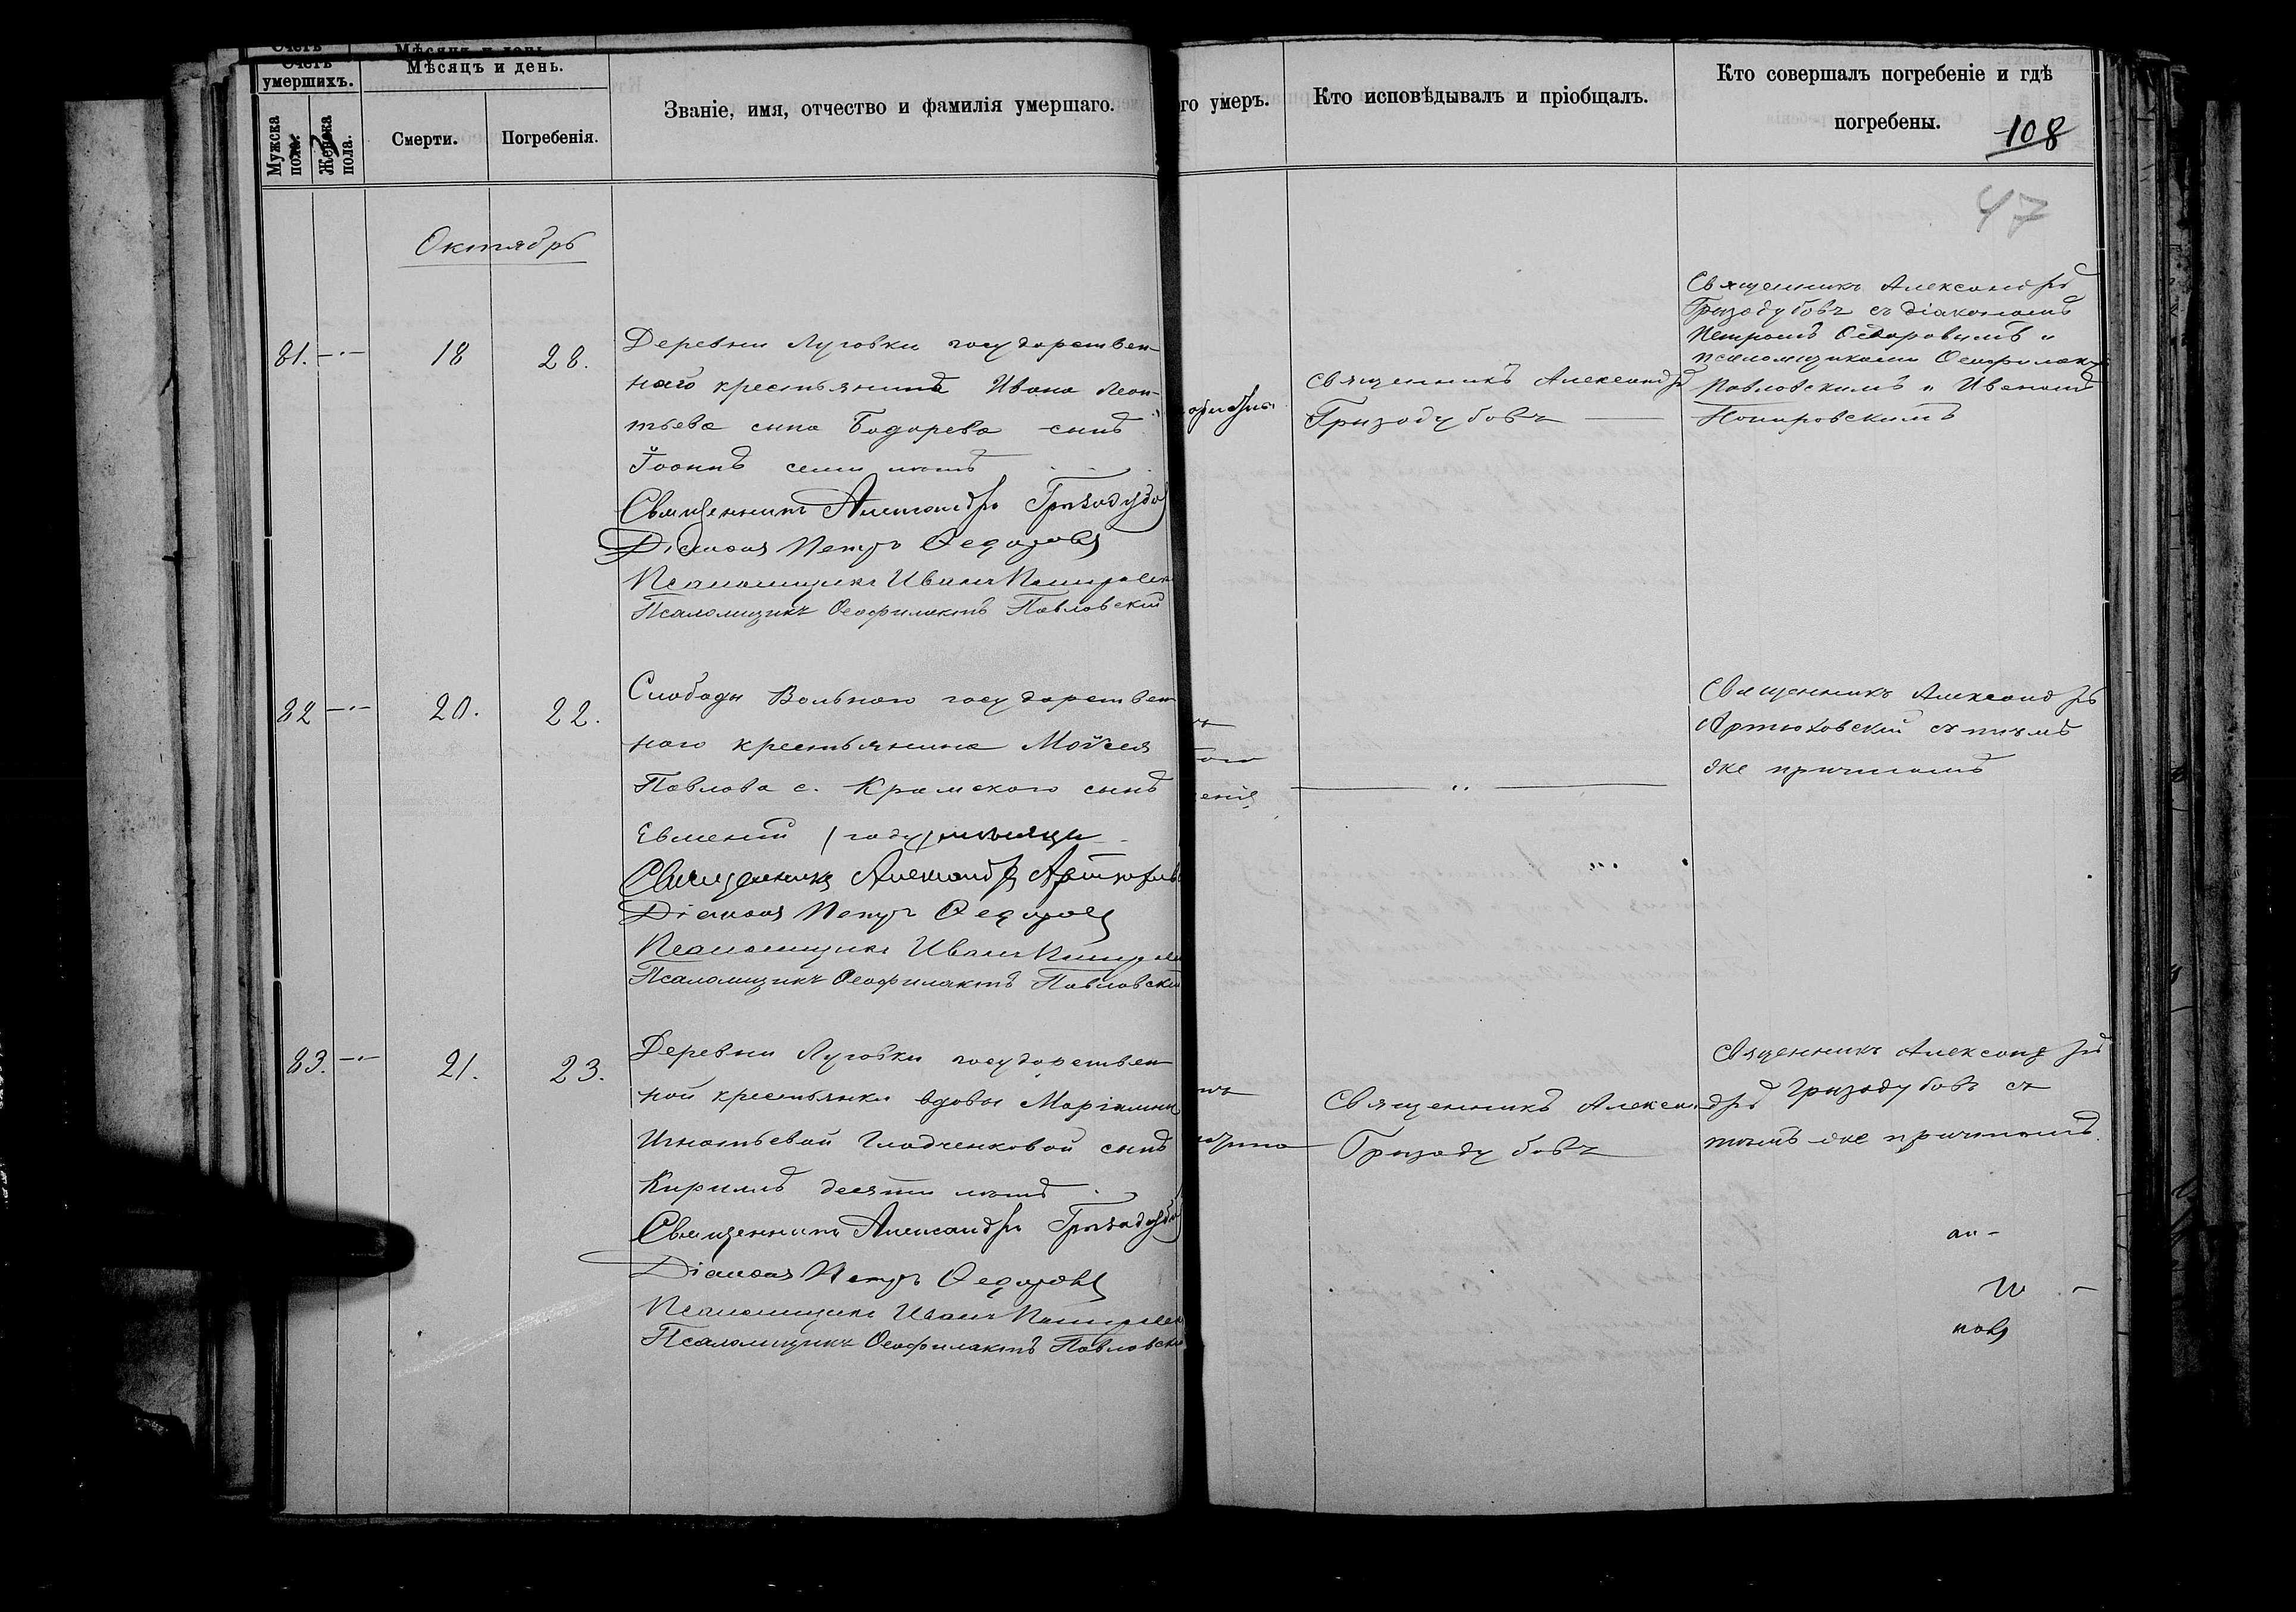 Счетъ
Мѣсяцъ и день
Счетъ умершихъ.
Мѣсяцъ и день.
Мужска пола.
Женска пола.
Смерти.
Погребенія.
Званіе, имя, отчество и фамилія умершаго.
го умеръ.
Кто исповѣдывалъ и пріобщалъ.
Кто совершалъ погребеніе и гдѣ
погребены.
108
47
Октябрь
81.
18
28.
Деревни Луговки государствен-
наго крестьянина Ивана Леон-
тьева сына Бодарева сынъ
Іоаннъ семи лѣтъ
Священникъ Александръ Гризодубов
Діаконъ Петръ Ѳедоровъ
Псаломщикъ Иванъ
Псаломщикъ Ѳеофилактъ Павловскій
Священникъ Александръ
Гризодубовъ
Священникъ Александръ
Гризодубовъ съ діакономъ
Петромъ Ѳедоровымъ и
псаломщиками Ѳеофилакт
Павловскимъ и Иваномъ
82
20.
22.
Слободы Вольного государствен
ного крестьянина Мойсея
Павлова с. Крамского сынъ
Евмений 1 году
Священникъ Александръ Артюховс
Діаконъ Петръ Ѳедоровъ
Псаломщикъ Иванъ
Псаломщикъ Ѳеофилактъ Павловскій
енія
Священникъ Александръ
Артюховскій съ тѣмъ
же причтомъ
83.
21.
23.
Деревни Луговки государствен
ной крестьянки вдовы Маріамны
Игнатьевой Гладченковой сынъ
Кириллъ десяти лѣтъ
Священникъ Александръ Гризодубов
Діаконъ Петръ Ѳедоровъ
Псаломщикъ Иванъ
Псаломщикъ Ѳеофилактъ Павловскій
Священникъ Александръ
Гризодубовъ
Священникъ Александръ
Гризодубовъ съ
тѣмъ же причтомъ.